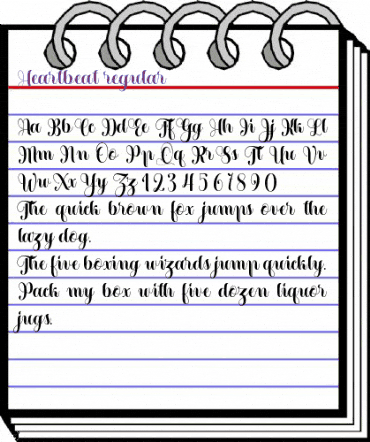 Heartbeat regular
Aa Bb Cc Dd Ee Ff Gg Hh Ii Jj Kk Ll
Mm Nn Oo Pp Qq Rr Ss Tt Uu Vv
Ww Xx Yy Zz 1 2 3 4 5 6 7 8 9 0
The quick brown fox jumps over the
lazy dog.
The five boxing wizards jump quickly.
Pack my box with five dozen liquor
jugs.